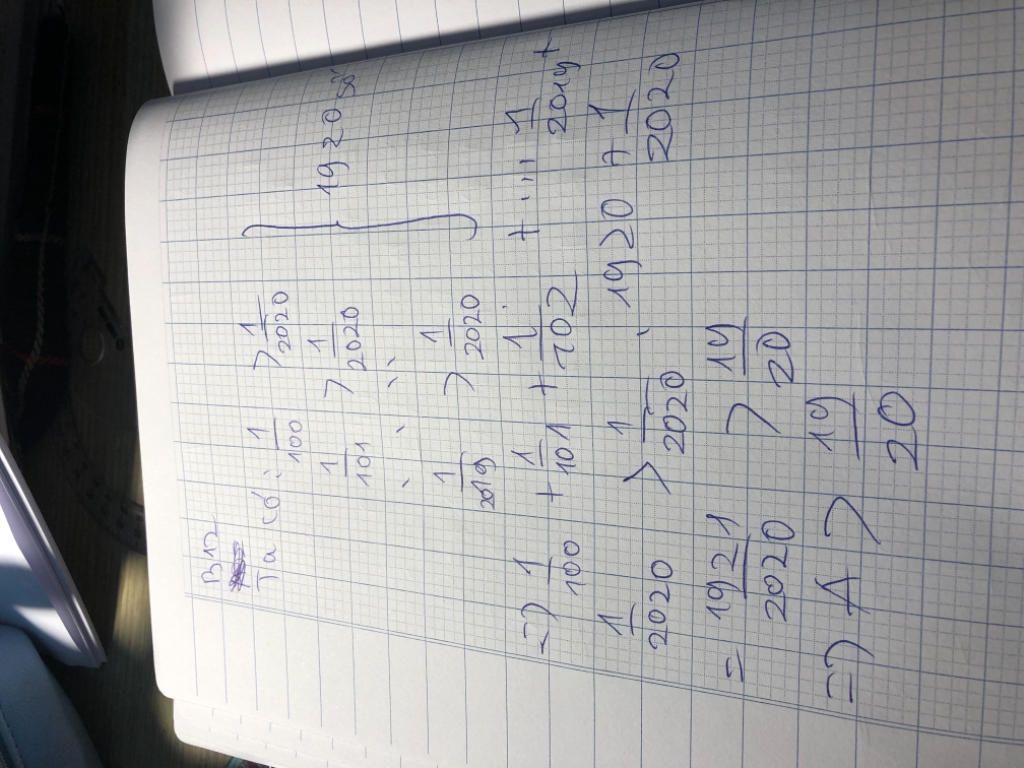 B12
Ta có: 1/100 > 1/2020
1/101 > 1/2020
1/2019 > 1/2020
} 1920 số
=> 1/100 + 1/101 + 1/102 + ... + 1/2019 +
1/2020 > 1/2020 . 1920 + 1/2020
= 1921/2020 > 19/20
=> A > 19/20